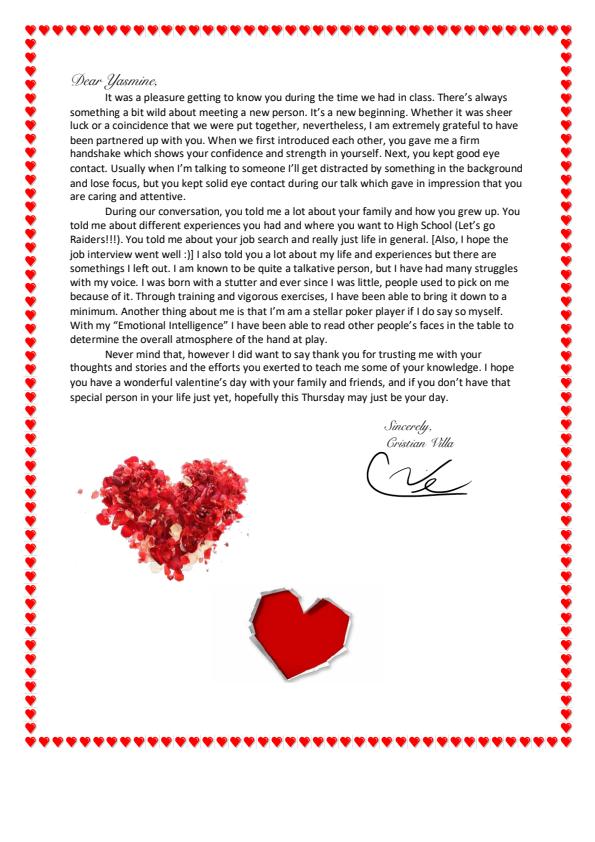 Dear Yasmine,
It was a pleasure getting to know you during the time we had in class. There’s always
something a bit wild about meeting a new person. It’s a new beginning. Whether it was sheer
luck or a coincidence that we were put together, nevertheless, I am extremely grateful to have
been partnered up with you. When we first introduced each other, you gave me a firm
handshake which shows your confidence and strength in yourself. Next, you kept good eye
contact. Usually when I’m talking to someone I’ll get distracted by something in the background
and lose focus, but you kept solid eye contact during our talk which gave in impression that you
are caring and attentive.
During our conversation, you told me a lot about your family and how you grew up. You
told me about different experiences you had and where you want to High School (Let’s go
Raiders!!!). You told me about your job search and really just life in general. [Also, I hope the
job interview went well :)] I also told you a lot about my life and experiences but there are
somethings I left out. I am known to be quite a talkative person, but I have had many struggles
with my voice. I was born with a stutter and ever since I was little, people used to pick on me
because of it. Through training and vigorous exercises, I have been able to bring it down to a
minimum. Another thing about me is that I’m am a stellar poker player if I do say so myself.
With my “Emotional Intelligence” I have been able to read other people’s faces in the table to
determine the overall atmosphere of the hand at play.
Never mind that, however I did want to say thank you for trusting me with your
thoughts and stories and the efforts you exerted to teach me some of your knowledge. I hope
you have a wonderful valentine’s day with your family and friends, and if you don’t have that
special person in your life just yet, hopefully this Thursday may just be your day.
Sincerely,
Cristian Villa